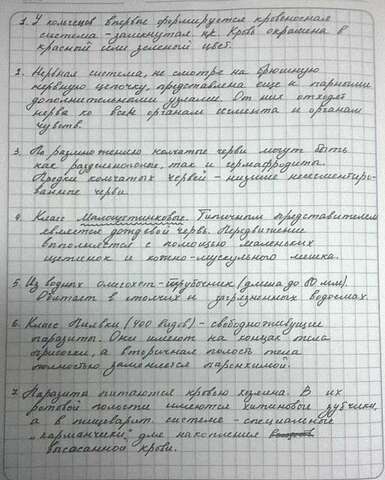 1. У кольчецов впервые формируется кровеносная
система - замкнутая цк. Кровь окрашена в
красный или зеленый цвет.
2. Нервная система, не смотря на брюшную
нервную цепочку, представлена еще и парными
дополнительными узлами. От них отходят
нерва ко всем органам сегмента и органам
чувств.
3. По размножению кольчатые черви могут быть
как раздельнополые, так и гермафродиты.
Предки кольчатых червей - низшие несегментиро-
ванные черви.
4. Класс Малощетинковые. Типичным представителем
является дождевой червь. Передвижение
выполняется с помощью маленьких
щетинок и кожно-мускульного мешка.
5. Из водных олигохет - трубочник (длина до 80 мм).
Обитает в стоячих и загрязненных водоемах.
6. Класс Пиявки (400 видов) - свободноживущие
паразиты. Они имеют на концах тела
присоски, а вторичная полость тела
полностью заменяется паренхимой.
7. Паразита питаются кровью хозяина. В их
ротовой полости имеются хитиновые зубчики,
а в пищеварит. системе - специальные
"карманчики" для накопления
всосанной крови.